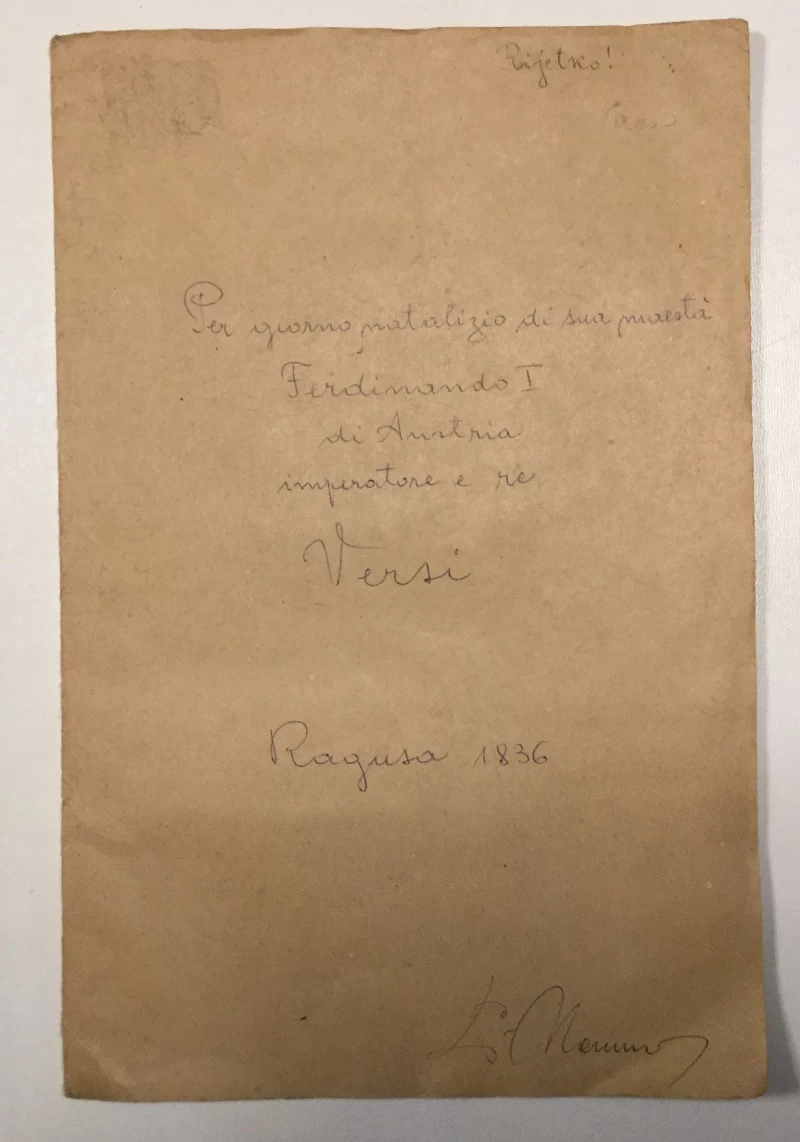 Rijetko!
Per giorno natalizio di sua maestà
Ferdinando I
di Austria
imperatore e re
Versi
Ragusa 1836